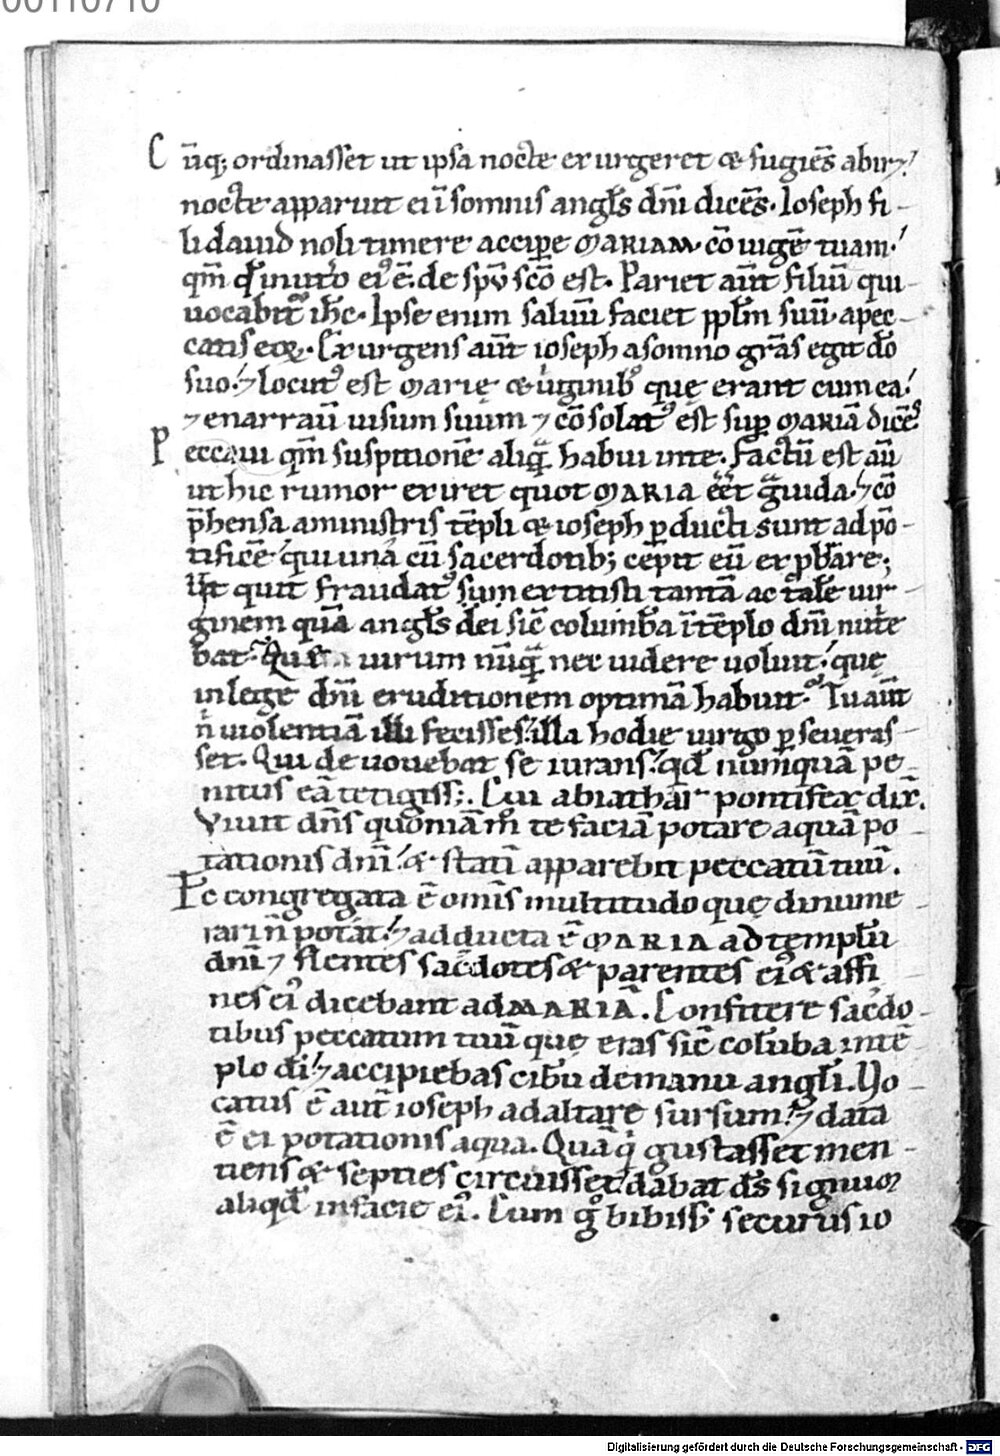 00110710
Cūq; ordinasset ut ipsa nocte exurgeret & fugiēs abir&
nocte apparuit ei ī somnis angl̄s dn̄i dicēs. Ioseph fi-
li dauid noli timere accipe MARIAM cōiugē tuam.
qm̄ qđ in utō eiꝰ ē. de spū scō est. Pariet aūt filiū qui
uocabit ih̄c. Ipse enim saluū faciet ppl̄m suū. a pec-
catis eoꝝ. Exurgens aūt ioseph a somno grās egit dō
suo. ⁊ locutꝰ est marię & uirginibꝰ quę erant cum ea.
⁊ enarrauī uisum suum ⁊ cōsolatꝰ est sup MARIĀ dicēs
Peccaui qm̄ suspitionē aliq̄ habui in te. Factū est aū
ut hic rumor exiret quot MARIA eēt grauida. ⁊ cō
p̄hensa a ministris tēpli & ioseph pducti sunt ad pō-
tificē qui una cū sacerdotib; cepit eū exprobare;
Ut quit fraudatꝰ sum extitisti tantā ac talē uir-
ginem quā angl̄s dei sic̄ columbā ī tēplo dn̄i nutrie
bat. Quę uirum nūq̄ nec uidere uoluit. quę
in lege dn̄i eruditionem optimā habuit. Tu aūt
n̄ uiolentiā illi fecisses. illa hodie uirgo pseueras-
set. Qui deuouebat se iurans. qđ numquā pe-
nitus eā tetigiss;. Cui abiathār pontifex dix̄.
Viuit dn̄s quoniā m̊ te faciā potare aquā po-
tationis dn̄i. & statī apparebit peccatū tuū.
Ec congregata ē omīs multitudo quę dinume
rari n̄ poterat. ⁊ adducta ē MARIA ad templū
dn̄i ⁊ flentes sacēdotes & parentes eiꝰ & affi
nes eiꝰ dicebant ad MARIĀ. Confitere sacēdo-
tibus peccatum tuū que eras sic̄ colūba in tē-
plo dī. ⁊ accipiebas cibū de manu angl̄i. Uo-
catus ē aūt ioseph ad altare sursum. ⁊ data
ē ei potationis aqua. Quā q̇ gustasset men-
tiens & septies circuisset dabat dꝰs signum
aliqđ in facie eiꝰ. Cum g̊ bibiss; securus io
Digitalisierung gefördert durch die Deutsche Forschungsgemeinschaft - DFG